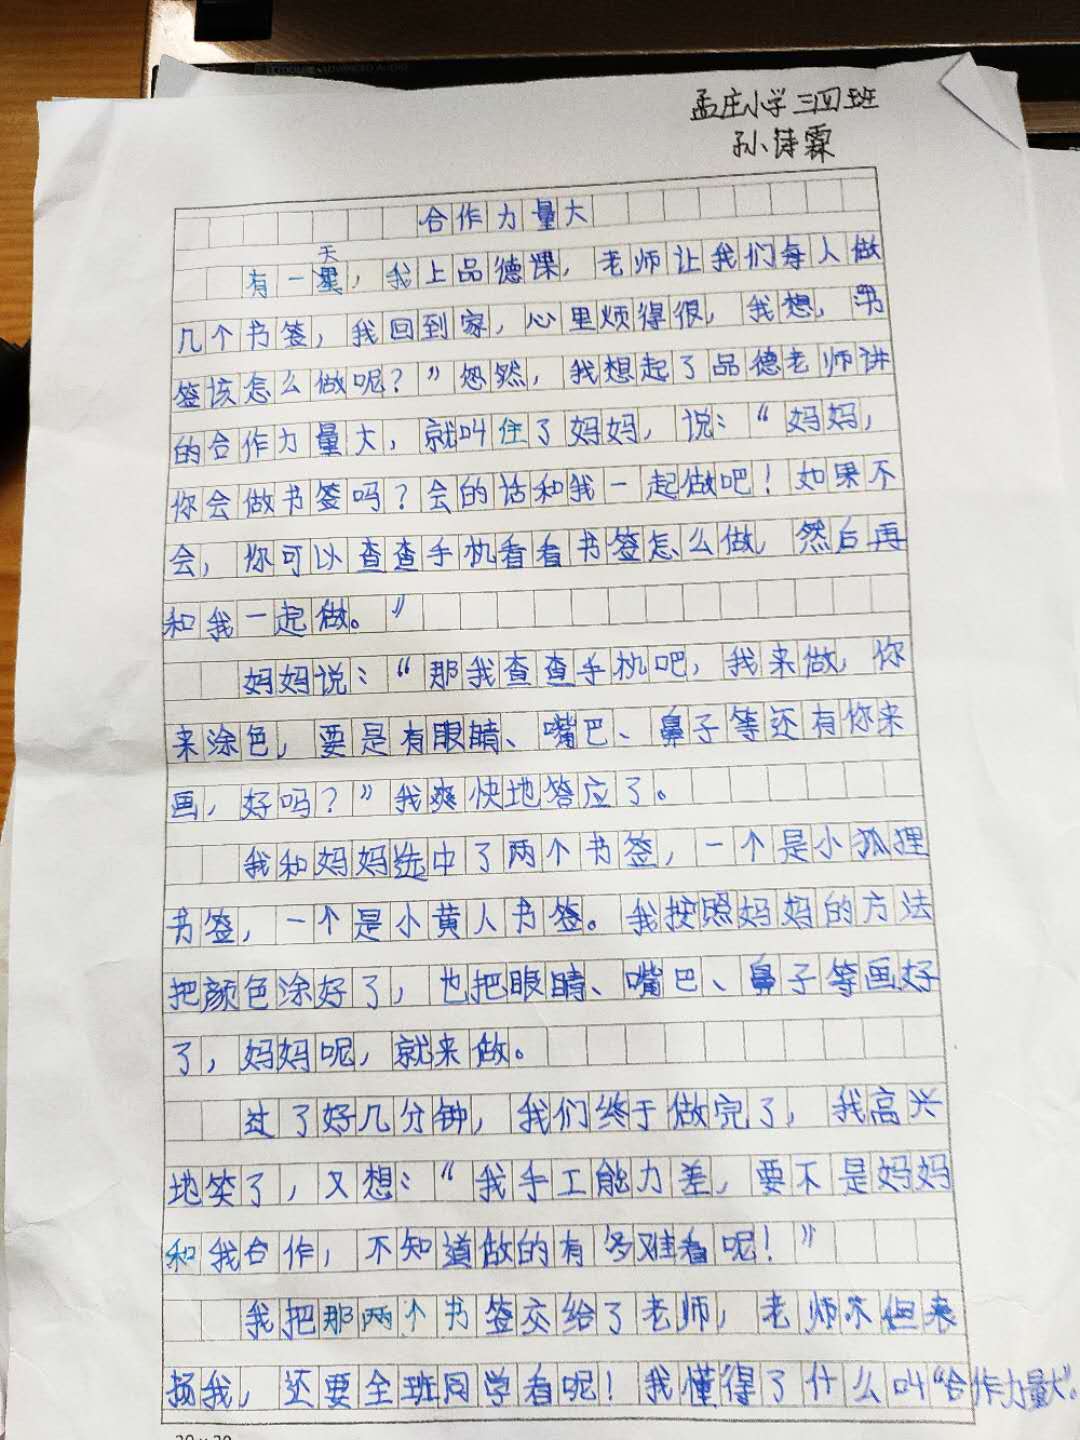 孟庄小学三四班
孙诗霖
合作力量大
天
有一星，我上品德课，老师让我们每人做
几个书签，我回到家，心里烦得很，我想，书
签该怎么做呢？”忽然，我想起了品德老师讲
的合作力量大，就叫住了妈妈，说：“妈妈，
你会做书签吗？会的话和我一起做吧！如果不
会，你可以查查手机看看书签怎么做，然后再
和我一起做。”
妈妈说：“那我查查手机吧，我来做，你
来涂色，要是有眼睛、嘴巴、鼻子等还有你来
画，好吗？”我爽快地答应了。
我和妈妈选中了两个书签，一个是小狐狸
书签，一个是小黄人书签。我按照妈妈的方法
把颜色涂好了，也把眼睛、嘴巴、鼻子等画好
了，妈妈呢，就来做。
过了好几分钟，我们终于做完了，我高兴
地笑了，又想：“我手工能力差，要不是妈妈
和我合作，不知道做的有多难看呢！”
我把那两个书签交给了老师，老师不但表
扬我，还要全班同学看呢！我懂得了什么叫“合作力量大”。